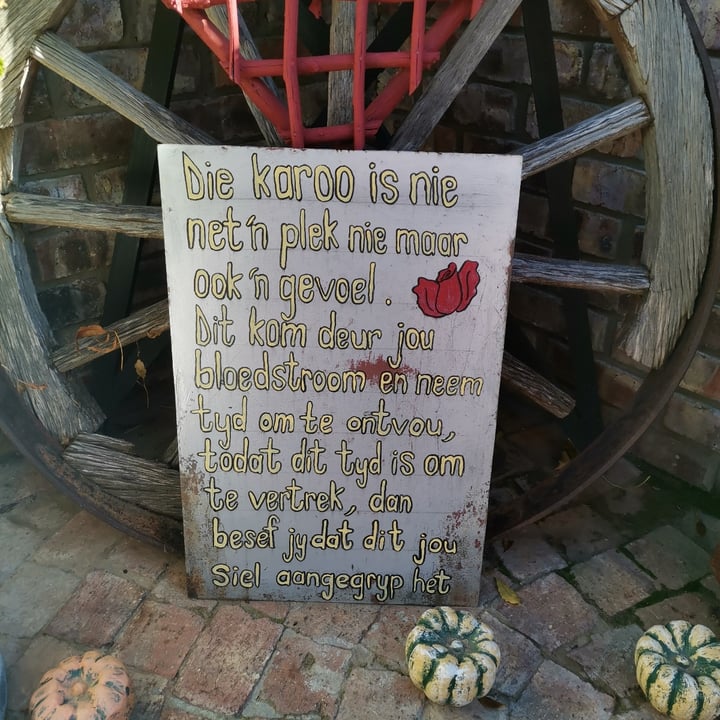 Die karoo is nie
net 'n plek nie maar
ook 'n gevoel.
Dit kom deur jou
bloedstroom en neem
tyd om te ontvou,
todat dit tyd is om
te vertrek, dan
besef jy dat dit jou
Siel aangegryp het